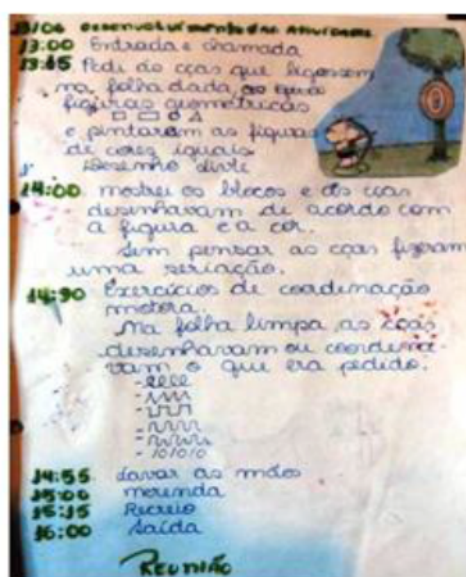 13/06 Desenvolvimento das Atividades
13:00 Entrada e chamada
13:15 Pedi às cças que ligassem
na folha dada, as
figuras geométricas
□ ▭ ○ △
e pintaram as figuras
de cores iguais
Desenho livre
14:00 mostrei os blocos e as cças
desenhavam de acordo com
a figura e a cor.
Sem pensar as cças fizeram
uma seriação.
14:30 Exercícios de coordenação
motora.
Na folha limpa, as cças
desenhavam ou coordena-
vam o que era pedido.
- 101010
14:55 Lavar as mãos
15:00 merenda
15:15 Recreio
16:00 Saída
REUNIÃO